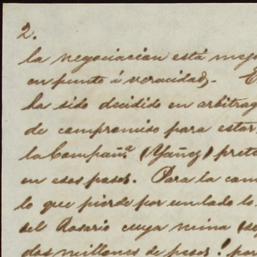 2.
la negociacion está mejo
en punto á veracidad,. E
ha sido dividido en arbitrag
de compromiso para estar
la Compañ.ª (Yañez) prete
en esos pasos. Para la cam
lo que pierde por un lado lo
del Rosario cuya mina (se
dos millones de pesos! por